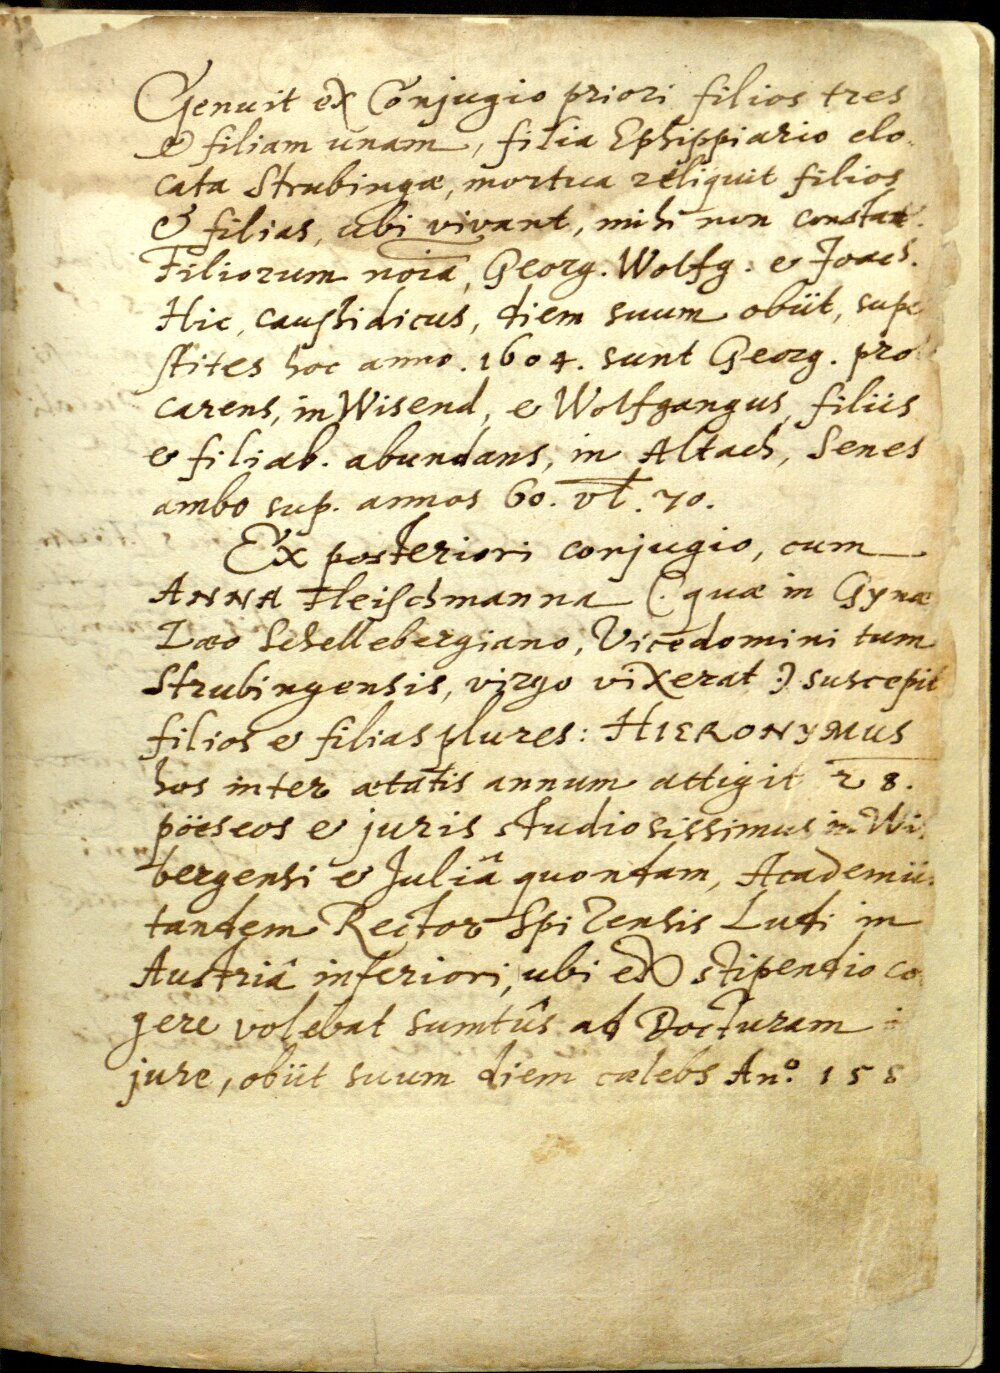 Genuit ex Conjugio priori filios tres
& filiam unam, filia Ephippiario elo-
cata Strubingæ, mortua reliquit filios
& filias, ubi vivant, mihi non constat.
Filiorum noīa, Georg. Wolfg. & Joach.
Hic, caussidicus, diem suum obiit, supe
stites hoc anno. 1604. sunt Georg. pro
carens, in Wisend, & Wolfgangus, filiis
& filiab. abundans, in Altach, Senes
ambo sup. annos 60. vl. 70.
Ex posteriori conjugio, cum
ANNA Fleischmanna (: quæ in Gynæ
Læo Schellebergiano, Vicedomini tum
Strubingensis, virgo vixerat :) suscepit
filios & filias plures: HIERONYMUS
hos inter ætatis annum attigit 28.
pöeseos & juris studiosissimus in Wi
bergensi & Juliâ quondam, Academiis
tandem Rector Spizensis Ludi in
Austriâ inferiori, ubi ex stipendio co
gere volebat sumtûs ad Docturam
jure, obiit suum diem cælebs Anº. 158